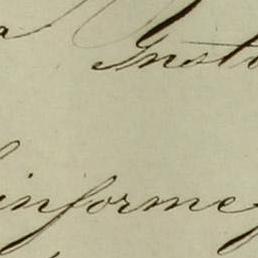 a
Insti
informe